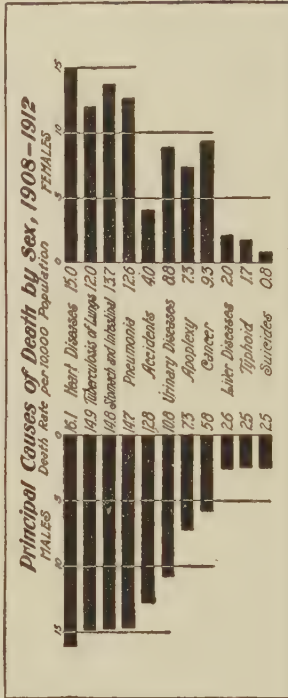 Principal Causes of Death by Sex, 1908-1912
MALES Death Rate per 10,000 Population FEMALES
15 10 5 0 0 5 10 15
16.1 Heart Diseases 15.0
14.9 Tuberculosis of Lungs 12.0
14.8 Stomach and Intestinal 13.7
14.7 Pneumonia 12.6
12.8 Accidents 4.0
10.8 Urinary Diseases 8.8
7.3 Apoplexy 7.3
5.8 Cancer 9.3
2.6 Liver Diseases 2.0
2.5 Typhoid 1.7
2.5 Suicides 0.8